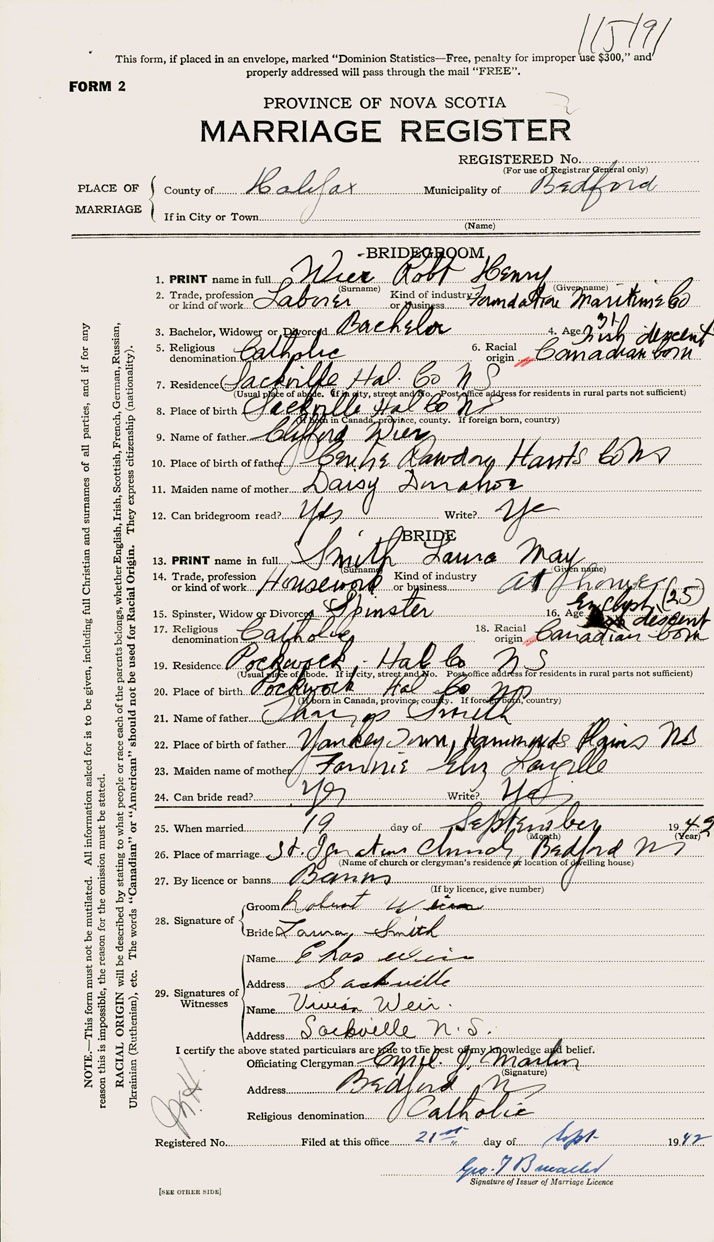 115191
This form, if placed in an envelope, marked "Dominion Statistics—Free, penalty for improper use $300," and
properly addressed will pass through the mail "FREE".
FORM 2
PROVINCE OF NOVA SCOTIA
MARRIAGE REGISTER
REGISTERED No.
(For use of Registrar General only)
PLACE OF MARRIAGE
County of Halifax Municipality of Bedford
If in City or Town
(Name)
BRIDEGROOM
1. PRINT name in full Wier Robt Henry
(Surname) (Given name)
2. Trade, profession or kind of work Laborer Kind of industry or business Foundation Maritime Co
3. Bachelor, Widower or Divorced Bachelor 4. Age 31
5. Religious denomination Catholic 6. Racial origin Irish descent Canadian born
7. Residence Sackville Hal. Co N S
(Usual place of abode. If in city, street and No. Post office address for residents in rural parts not sufficient)
8. Place of birth Sackville Hal Co N S
(If born in Canada, province, county. If foreign born, country)
9. Name of father Clifford Wier
10. Place of birth of father Centre Rawdon Hants Co N S
11. Maiden name of mother Daisy Donahoe
12. Can bridegroom read? Yes Write? Ye
BRIDE
13. PRINT name in full Smith Laura May
(Surname) (Given name)
14. Trade, profession or kind of work Housework Kind of industry or business at home
15. Spinster, Widow or Divorced Spinster 16. Age (25)
17. Religious denomination Catholic 18. Racial origin English descent Canadian born
19. Residence Pockwock, Hal Co N S
(Usual place of abode. If in city, street and No. Post office address for residents in rural parts not sufficient)
20. Place of birth Pockwock Hal Co N S
(If born in Canada, province, county. If foreign born, country)
21. Name of father Smith
22. Place of birth of father Yankey Town, Hammonds Plains N S
23. Maiden name of mother Fannie Eliz Langille
24. Can bride read? Yes Write? Yes
25. When married 19 day of September 1942
(Month) (Year)
26. Place of marriage St. Ignatius Church, Bedford N S
(Name of church or clergyman's residence or location of dwelling house)
27. By licence or banns Banns
(If by licence, give number)
28. Signature of
Groom Robert Weir
Bride Laura Smith
29. Signatures of Witnesses
Name Chas Weir
Address Sackville
Name Vivian Weir.
Address Sackville N.S.
I certify the above stated particulars are true to the best of my knowledge and belief.
Officiating Clergyman Cyril J. Martin
(Signature)
Address Bedford N S
Religious denomination Catholic
Registered No. Filed at this office 21st day of Sept 1942
Geo. T
Signature of Issuer of Marriage Licence
[SEE OTHER SIDE]
NOTE.—This form must not be mutilated. All information asked for is to be given, including full Christian and surnames of all parties, and if for any
reason this is impossible, the reason for the omission must be stated.
RACIAL ORIGIN will be described by stating to what people or race each of the parents belongs, whether English, Irish, Scottish, French, German, Russian,
Ukrainian (Ruthenian), etc. The words "Canadian" or "American" should not be used for Racial Origin. They express citizenship (nationality).